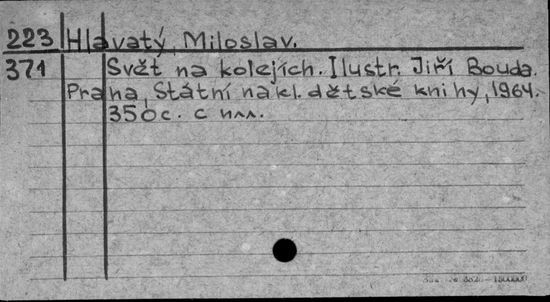 223 Hlavatý, Miloslav.
371 Svět na kolejích. Ilustr. Jiří Bouda.
Praha, Státní nakl. dětské knihy, 1964.
350с. с илл.